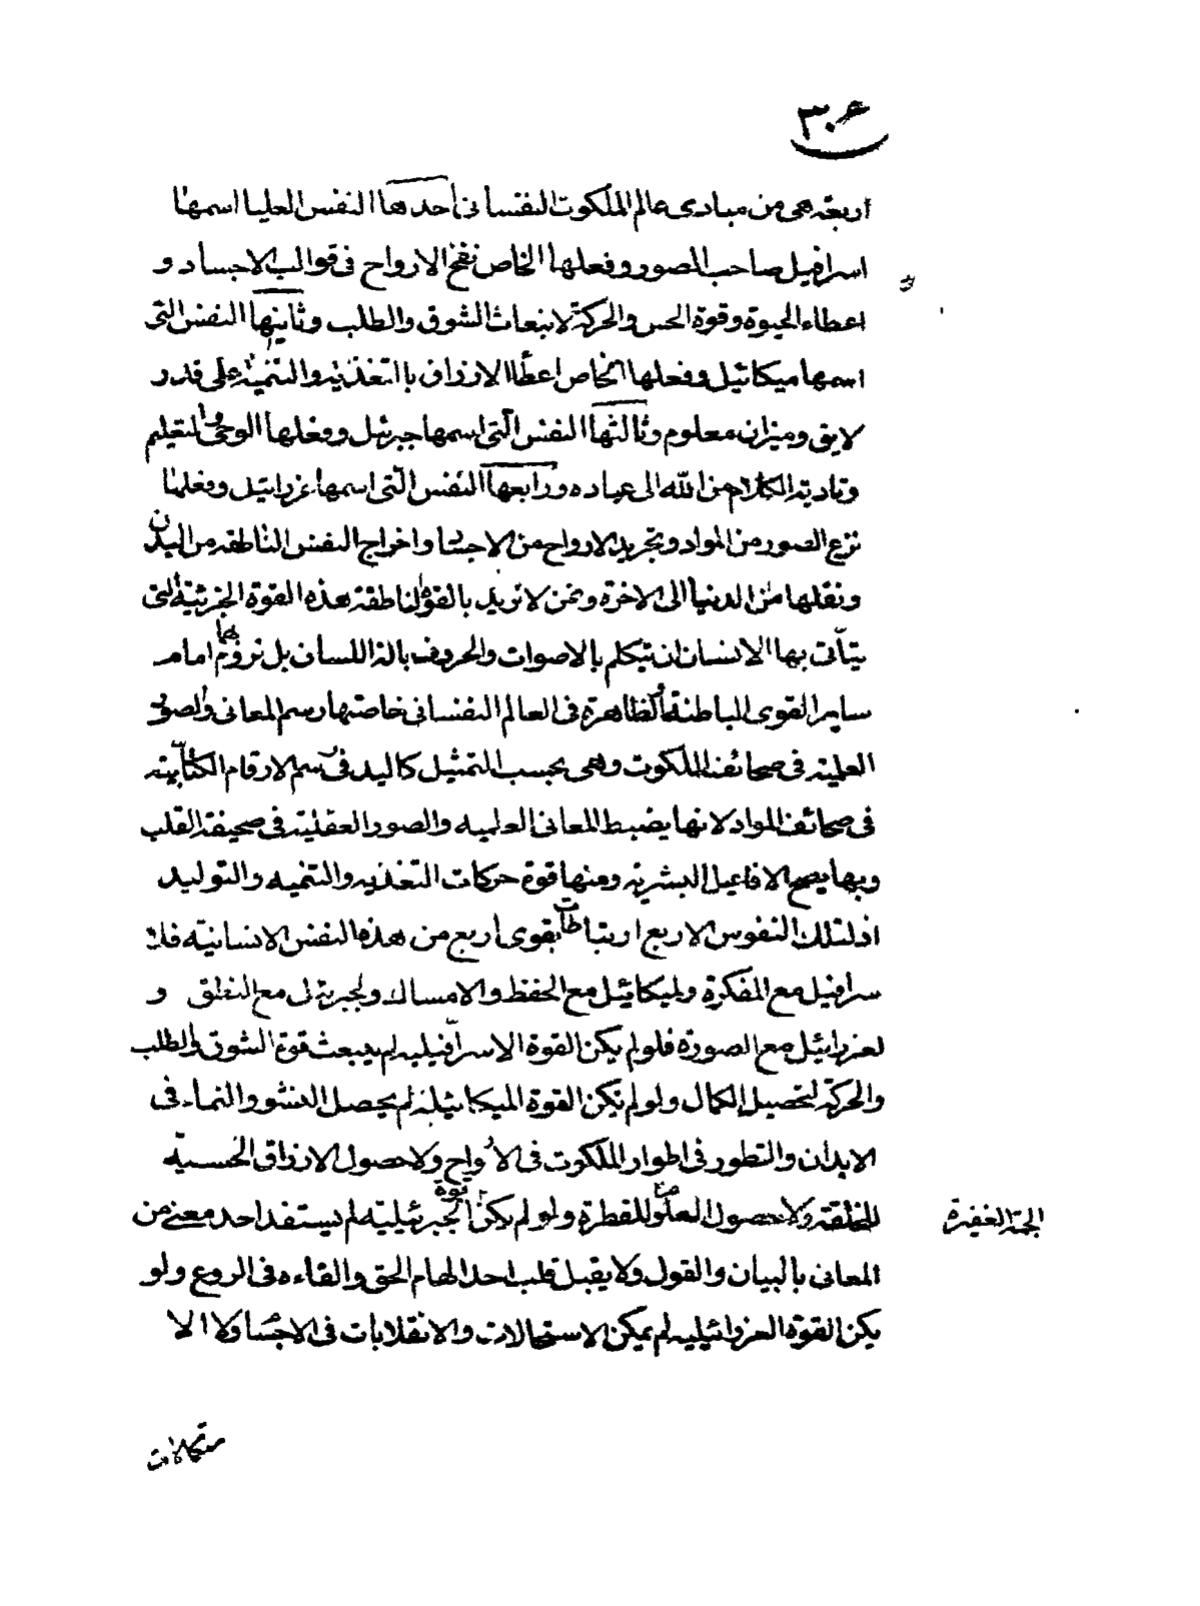 ٣٠۶
اربعة هى من مبادى عالم الملكوت النفسانى أحدها النفس العليا اسمها
اسرافيل صاحب الصور وفعلها الخاص نفخ الارواح فى قوالب الاجساد و
اعطاء الحيوة وقوة الحس والحركة لانبعاث الشوق والطلب وثانيها النفس التى
اسمها ميكائيل وفعلها الخاص اعطاء الارزاق بالتغذية والتنمية على قدر
لايق وميزان معلوم وثالثها النفس التى اسمها جبرئيل وفعلها الوحى والتعليم
وتادية الكلام من الله الى عباده ورابعها النفس التى اسمها عزرائيل وفعلها
نزع الصور من المواد وتجريد الارواح من الاجساد واخراج النفس الناطقه من البدن
ونقلها من الدنيا الى الاخرة ونحن لا نريد بالقوة الناطقة هذه القوة الجزئية التى
يتأتى بها الانسان ان يتكلم بالاصوات والحروف بالة اللسان بل نروم بها امام
ساير القوى الباطنة والظاهرة فى العالم النفسانى خاصتها رسم المعانى والصور
العلمية فى صحائف الملكوت وهى بحسب التمثيل كاليد فى رسم الارقام الكتابية
فى صحائف المواد لانها يضبط المعانى العلميه والصور العقلية فى صحيفة القلب
وبها يصح الافاعيل البشرية ومنها قوة حركات التغذيه والتنميه والتوليد
اذ لتلك النفوس الاربع ارتباطات بقوى أربع من هذه النفس الانسانية فلا
سرافيل مع المفكرة ولميكائيل مع الحفظ والامساك ولجبرئيل مع النطق و
لعزرائيل مع الصورة فلو لم يكن القوة الاسرافيليه لم ينبعث قوة الشوق والطلب
والحركة لتحصيل الكمال ولو لم تكن القوة الميكائيلية لم يحصل النشو والنماء فى
الابدان والتطور فى اطوار الملكوت فى الارواح ولا حصول الارزاق الحسية
للخلقة ولا حصول العلوم للفطرة ولو لم يكن القوة الجبرئيلية لم يستفد احد معنى من
الجمة الغفيرة
المعانى بالبيان والقول ولا يقبل قلب احد الهام الحق والقاءه فى الروع ولو
يكن القوة العزرائيليه لم يمكن الاستحالات والانقلابات فى الاجساد ولا الا
ستكمالات